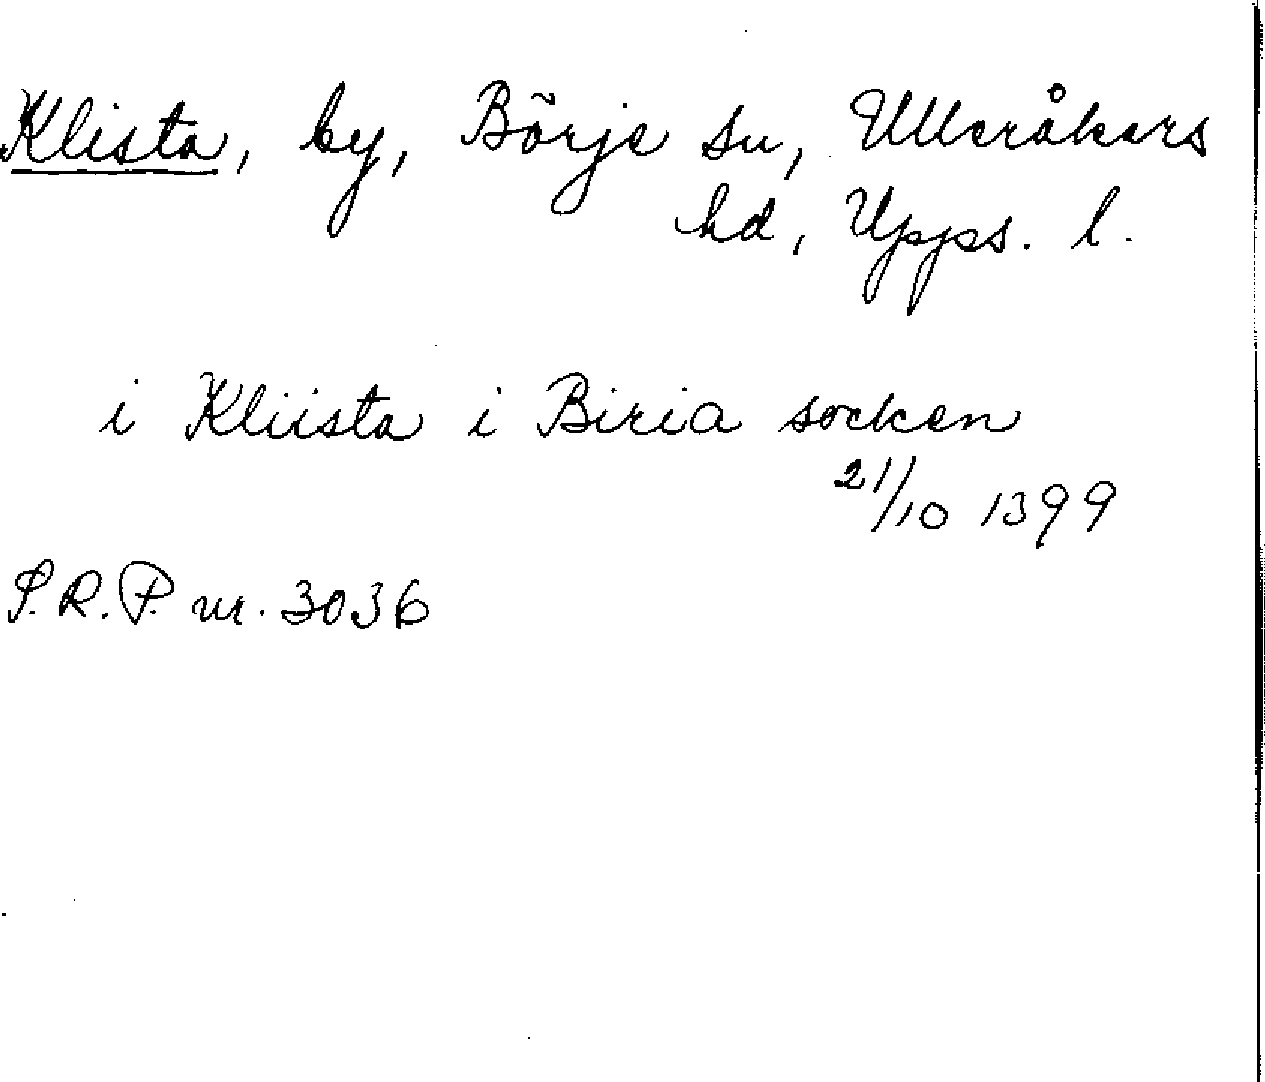 Klista, by, Börje sn, Ulleråkers
hd, Upps. l.
i Kliista i Biria socken
21/10 1399
S.R.P. nr. 3036